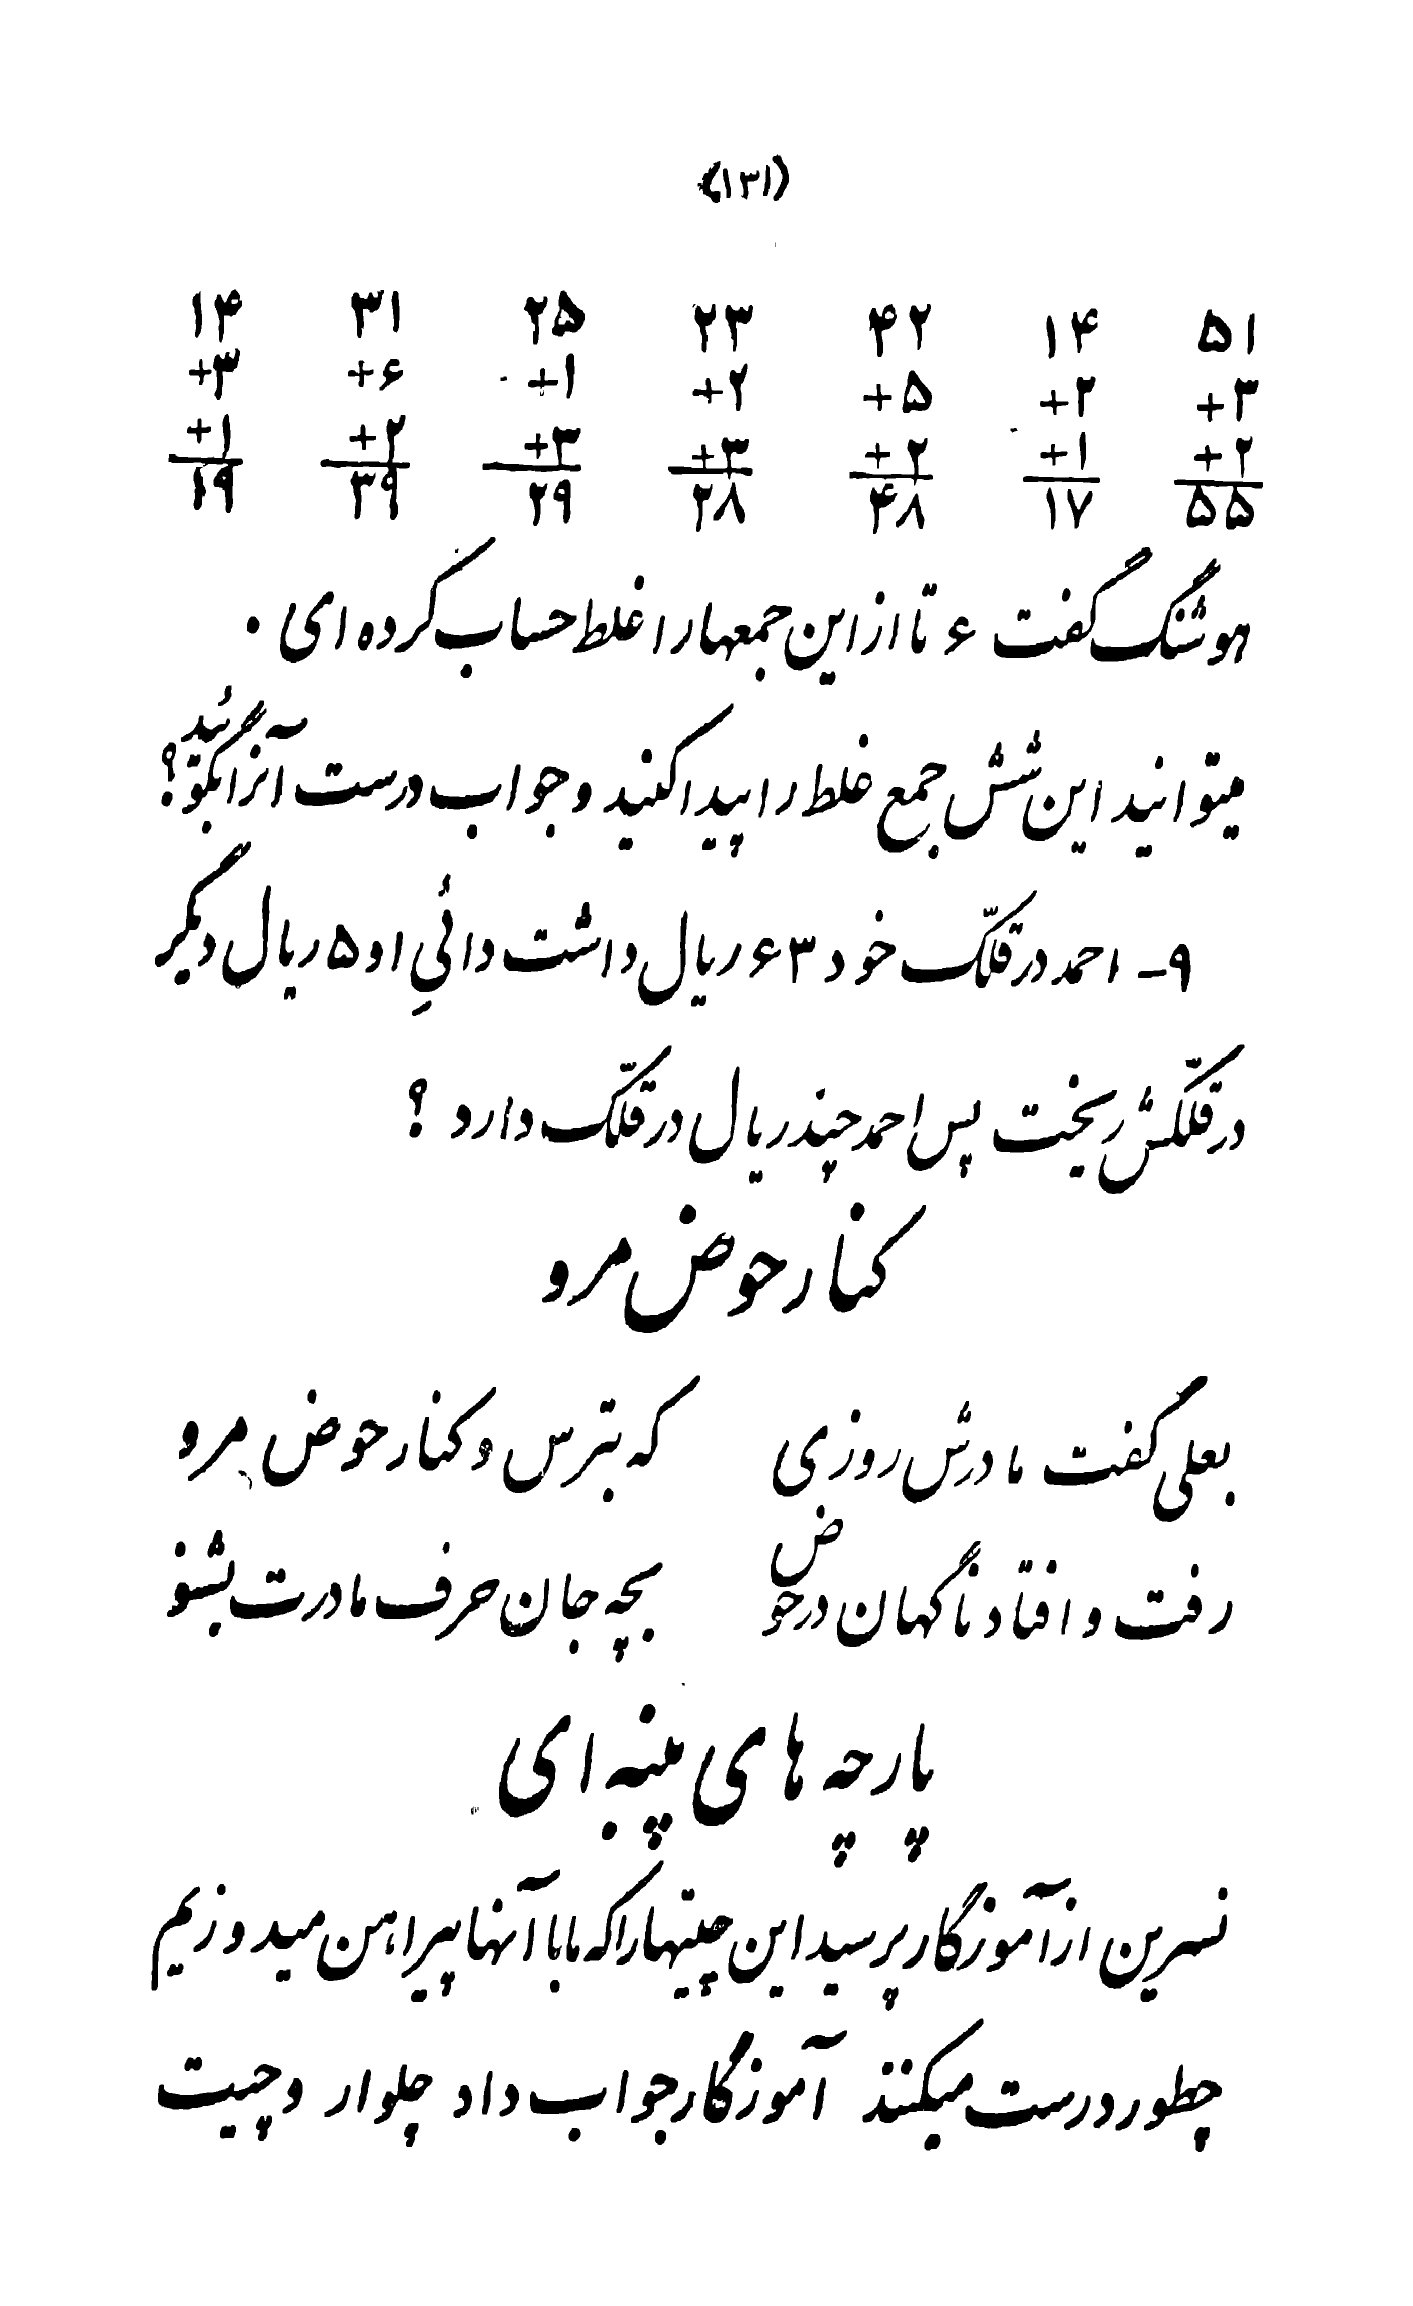 (۱۳۱)
۵۱ ۱۴ ۴۲ ۲۳ ۲۵ ۳۱ ۱۴
+۳ +۲ +۵ +۲ +۱ +۶ +۳
+۲ +۱ +۲ +۳ +۳ +۲ +۱
۵۵ ۱۷ ۴۸ ۲۸ ۲۹ ۳۹ ۱۹
هوشنگ گفت ۶ تا از این جمعها را غلط حساب کرده ای .
میتوانید این شش جمع غلط را پیدا کنید و جواب درست آنرا بگوئید ؟
۹ـ احمد در قلّک خود ۶۳ ریال داشت دائیِ او ۵ ریال دیگر
در قلّکش ریخت پس احمد چند ریال در قلّک دارد ؟
کنار حوض مرو
بعلی گفت مادرش روزی که بترس و کنار حوض مرو
رفت و افتاد ناگهان در حوض بچه جان حرف مادرت بشنو
پارچه های پنبه ای
نسرین از آموزگار پرسید این چیتها را که ما با آنها پیراهن میدوزیم
چطور درست میکنند آموزگار جواب داد چلوار و چیت